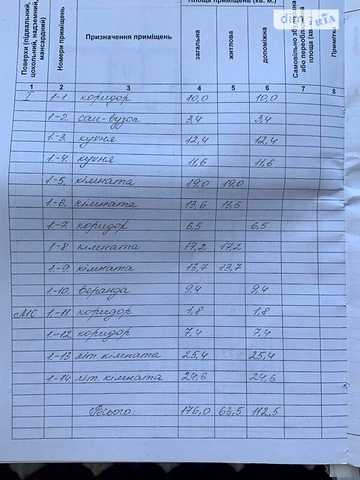 Площа приміщень (кв. м.)
Поверхи (підвальний, цокольний, надземний, мансардний)
Номери приміщень
Призначення приміщень
загальна
житлова
допоміжна
1 2 3 4 5 6 7 8
I 1-1 коридор 10,0 10,0
1-2 сан-вузол 3,4 3,4
1-3. кухня 12,4 12,4
1-4. кухня 11,6 11,6
1-5. кімната 19,0 19,0
1-6. кімната 13,6 13,6
1-7. коридор 6,5 6,5
1-8 кімната 17,2 17,2
1-9. кімната 13,7 13,7
1-10. веранда 9,4 9,4
1-11 коридор 1,8 1,8
1-12 коридор 7,4 7,4
1-13 літ. кімната 25,4 25,4
1-14 літ. кімната 24,6 24,6
Всього 176,0 63,5 112,5
RIA